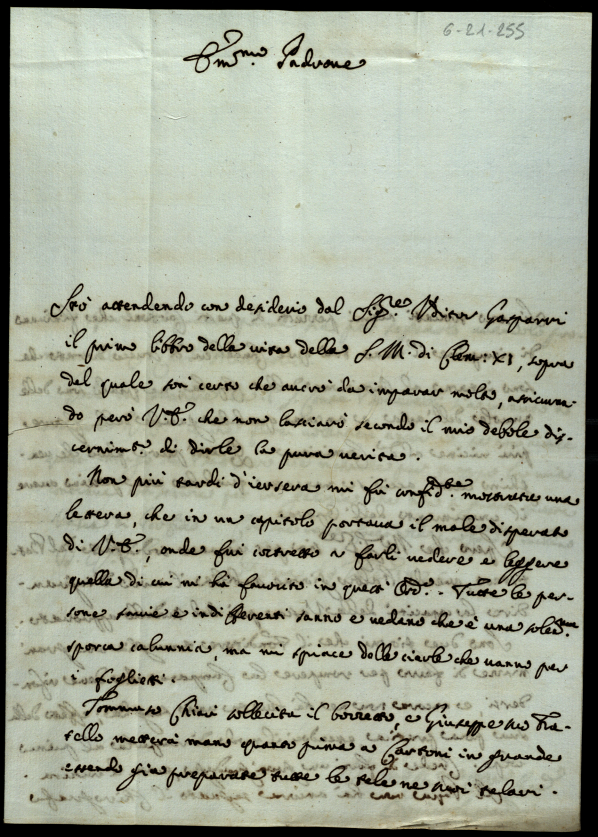 6-21-255
Em.mo Padrone
Stò attendendo con desiderio dal Sig.re Vditor Gasparri
il primo libbro della vita della S. M. di Clem: XI, sopra
del quale son certo che aurò da imparar molto, assicuran-
do però V.E. che non lasciarò secondo il mio debole dis-
cernim.to di dirle la pura verità.
Non più tardi d'iersera mi fù confid.te mostrata una
lettera, che in un capitolo portaua il male disperato
di V.E., onde fui costretto a farli vedere e leggere
quella di cui mi hà fauorito in questo Ord.o. Tutte le per-
sone sauie e indifferenti sanno e vedano che è una solen.me
sporca calunnia, ma mi spiace delle ciarle che vanno per
i foglietti.
Tommaso Chiari sollecita il bozzetto, e Giuseppe suo Fra-
tello metterà mano quanto prima a Cartoni in grande
essendo già preparate tutte le tele ne suoi telari.